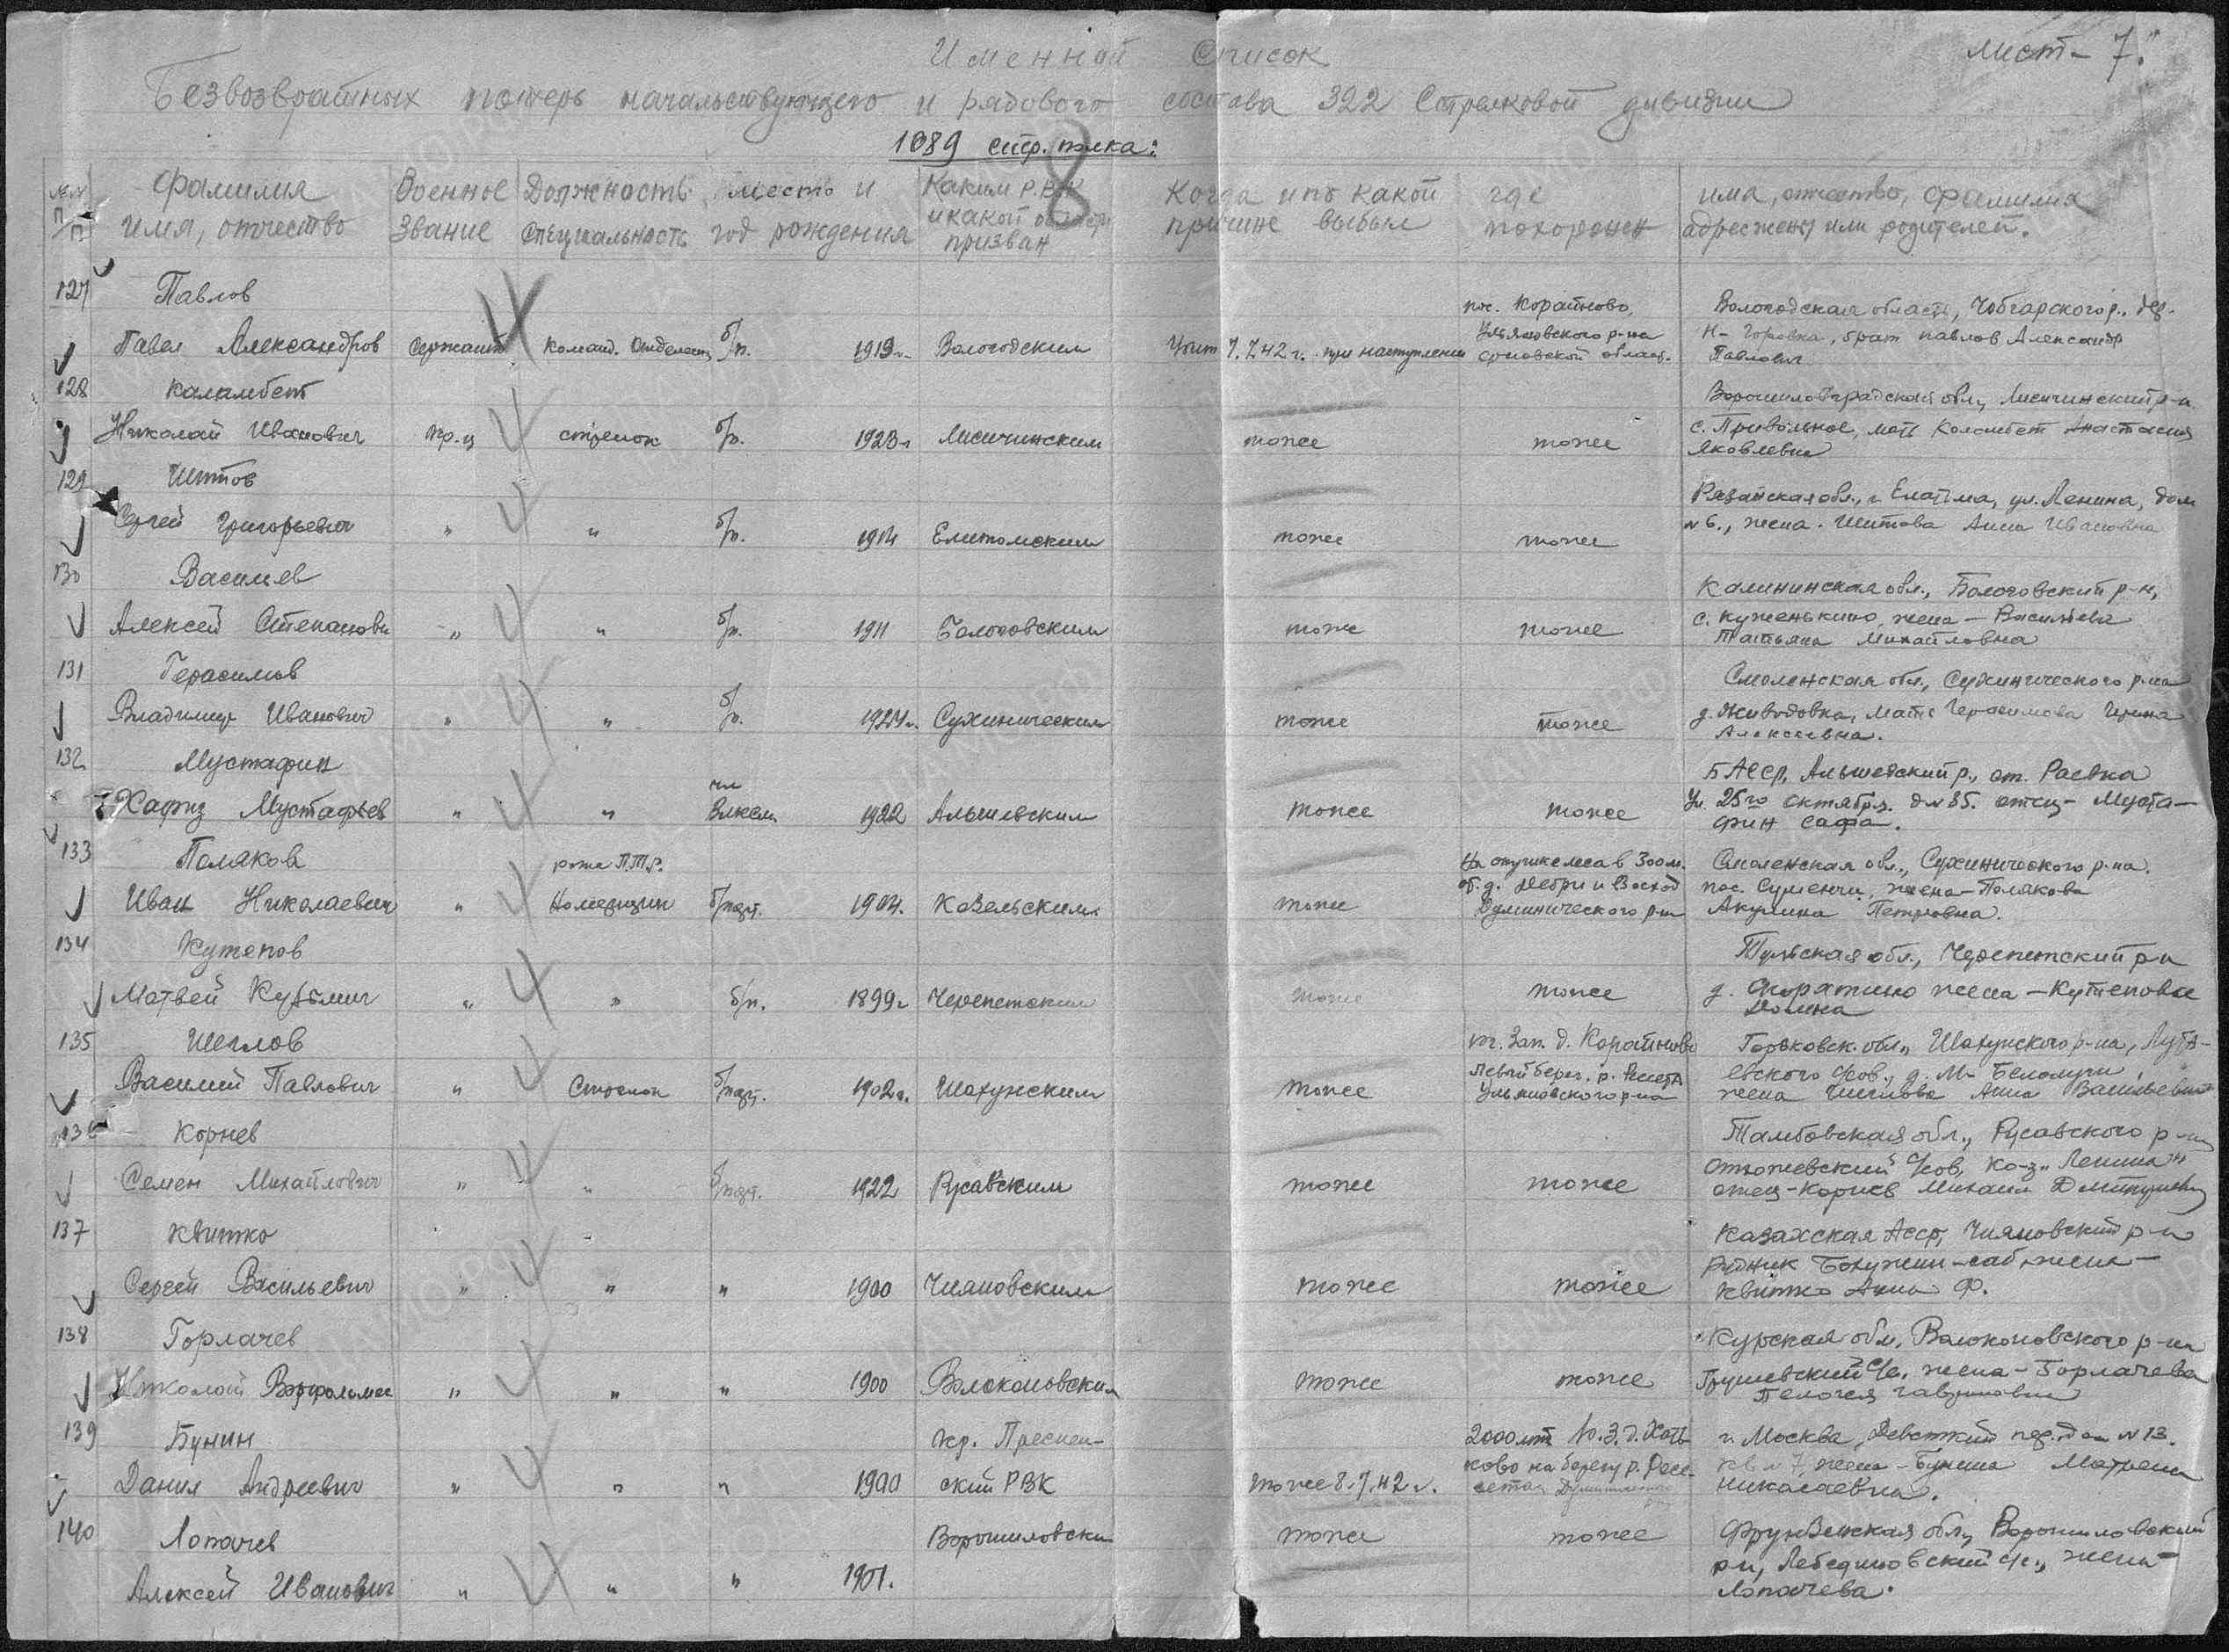 Именной список
лист- 7."
Безвозвратных потерь начальствующего и рядового состава 322 Стрелковой дивизии
1089 стр. полка:
8
№№ п/п
Фамилия имя, отчество
Военное звание
Должность специальность
место и год рождения
Каким Р.В.К и какой области призван
Когда и по какой причине выбыл
где похоронен
имя, отчество, фамилия адрес жены или родителей.
127 Павлов
Павел Александров сержант команд. отделен. б/п. 1919 г. Вологодским
Убит 7.7.42 г. при наступлении
Ульяновского р-на
орловской област.
Вологодская область,
брат павлов Александр
Павлович
128 Каламбет
Николай Иванович кр-ц стрелок б/п. 1923 г Лисичинским тоже тоже
Ворошиловградская обл, Лисичинский р-н
с. Привольное, мать Коламбет Анастасия
Яковлевна
129 Шитов
Сергей Григорьевич " " б/п. 1914 тоже тоже
Рязанская обл., г. Елатьма, ул. Ленина, дом
№ 6., жена. Шитова Анна Ивановна
130 Васильев
Алексей Степанови " " б/п. 1911 Бологовским тоже тоже
Калининская обл., Бологовский р-н,
с. Куженькино, жена - Васильева
Татьяна Михайловна
131 Герасимов
Владимир Иванович " " б/п. Сухиническим тоже тоже
Смоленская обл., Сухинического р-на
д. Живодовка, мать Герасимова Ирина
Алексеевна.
132 Мустафин
Хафиз Мустафьев " " чл Влксм 1922 Альшевским тоже тоже
БАССР, Альшевский р., ст. Раевка
Ул. 25го октября. д № 85. отец - Муста-
фин Сафа.
133 Поляков
рота П.Т.Р.
Иван Николаевич " б/парт. 1904. Козельским тоже
На опушке леса в 300 м.
от. д. Дебри и Восход
Думинического р-н
Смоленская обл., Сухинического р-на.
пос. жена - Полякова
Акулина Петровна.
134 Кутепов
Матвей Кузьмич " " б/п. 1899 г Черепетским тоже тоже
Тульская обл., Черепетский р-н
д. жена - Кутепова
135 Щеглов
Василий Павлович " Стрелок б/парт. 1902 г. Шахунским тоже
Левый берег. р.
Ульяновского р-на
Горьковск. обл., Шахунского р-на,
евского с/сов., д. М-
жена Анна Васильевна
136 Корнев
Семен Михайлович " " б/парт. 1922 тоже тоже
Тамбовская обл.,
с/сов, ко-з "Ленина"
отец - Корнев Михаил
137 Квитко
Сергей Васильевич " " " 1900 тоже тоже
Казахская АССР, р-н
жена -
Квитко Анна Ф.
138 Горлачев
Николай Варфоломее " " " 1900 Волоконовским тоже тоже
Курская обл. Волоконовского р-на
с/с. жена - Горлачева
139 Бунин
Данил Андреевич " " " 1900 Кр. Преснен-
ский РВК
тоже 8.7.42 г.
на берегу р. Рес-
сета
г. Москва, дом № 13.
кв. № 7, жена - Бунина Матрена
Николаевна.
140 Лопачев
Алексей Иванович " " " 1901. Ворошиловски тоже тоже
Фрунзенская обл, Ворошиловский
р-н, Лебединовский с/с., жена -
Лопачева.